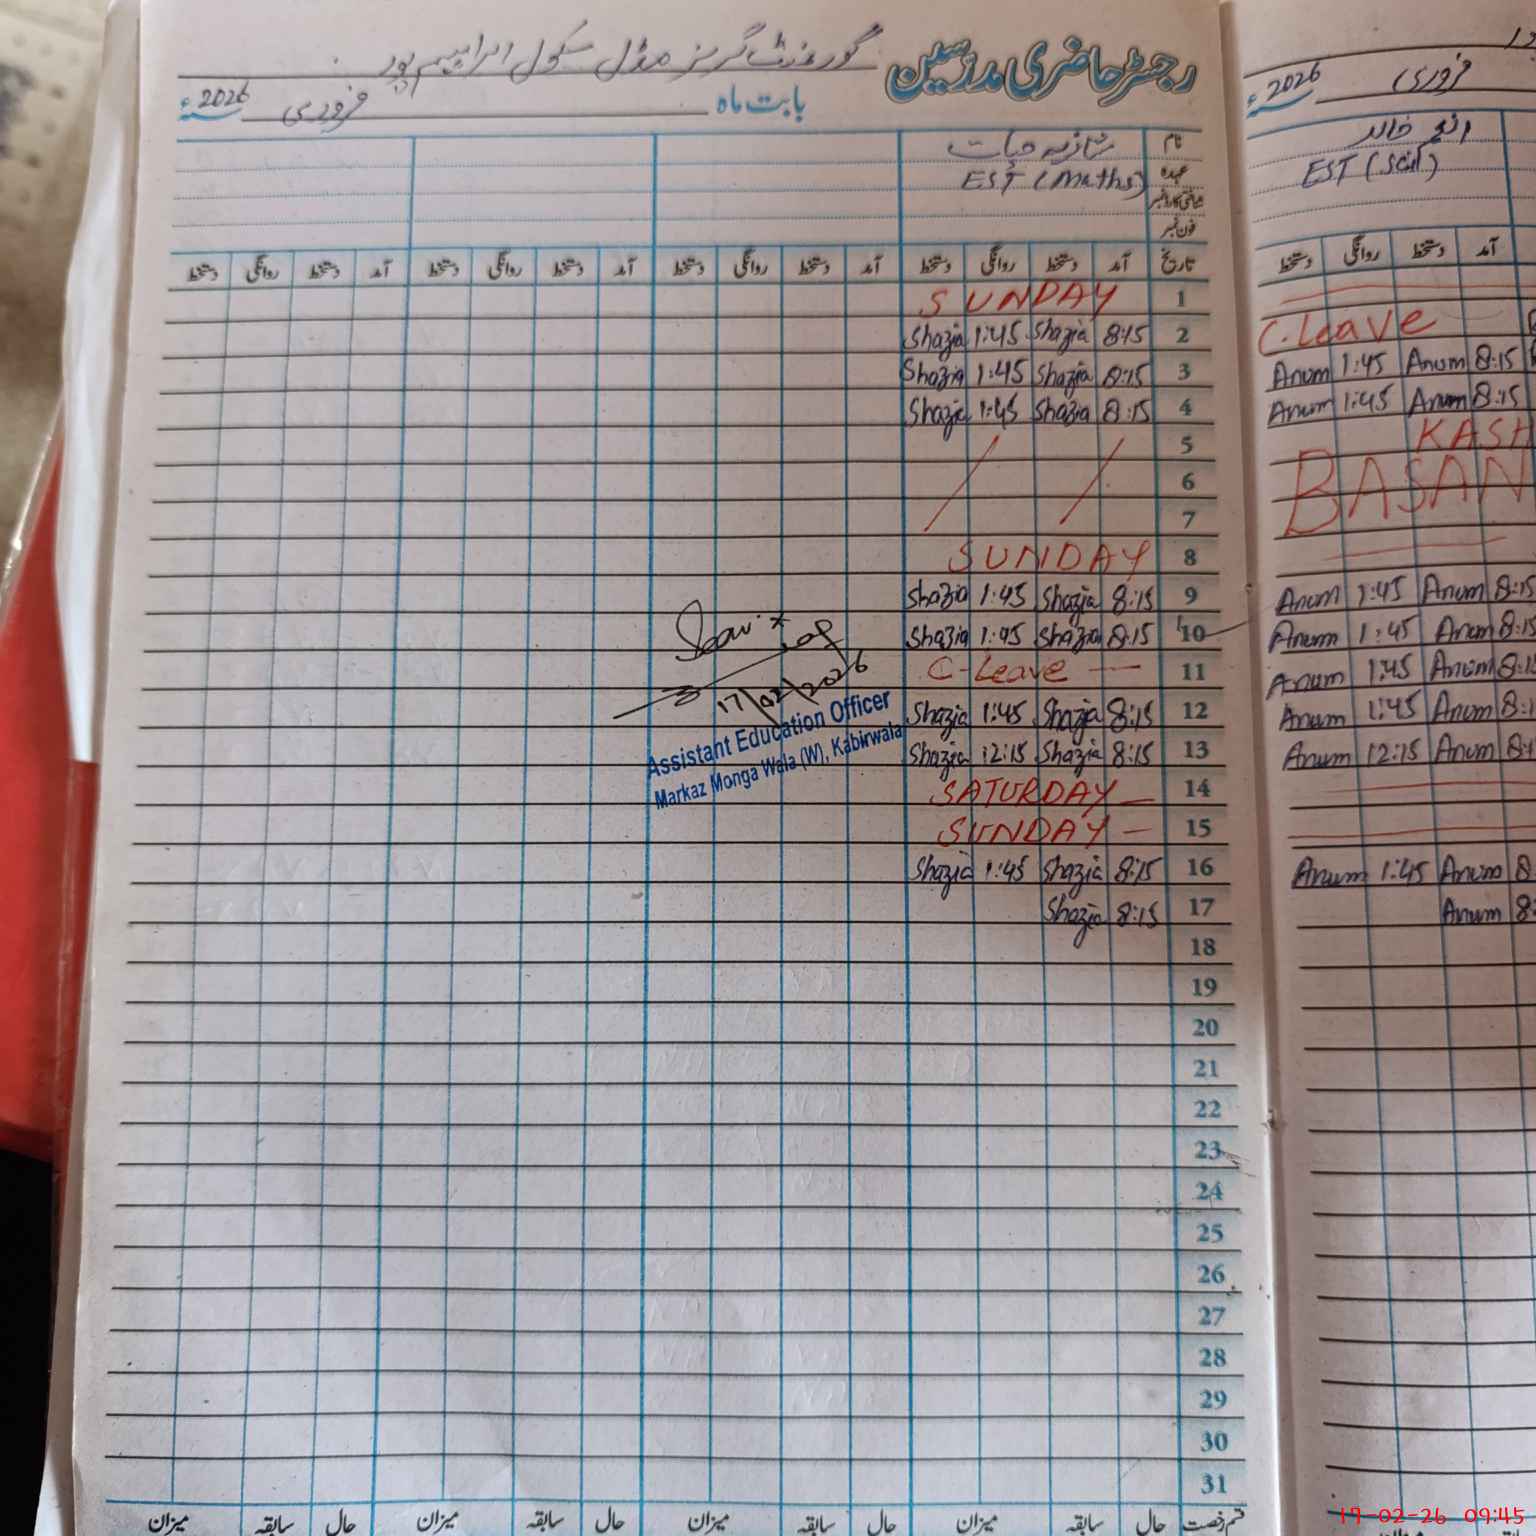 رجسٹر حاضری مدرسین گورنمنٹ گرلز مڈل سکول ابراہیم پور
بابت ماہ فروری 2026ء
نام شازیہ حیات
عہدہ EST (Maths)
شناختی کارڈ نمبر
فون نمبر
تاریخ آمد دستخط روانگی دستخط آمد دستخط روانگی دستخط آمد دستخط روانگی دستخط آمد دستخط روانگی دستخط
SUNDAY 1
Shazia 1:45 Shazia 8:15 2
Shazia 1:45 Shazia 8:15 3
Shazia 1:45 Shazia 8:15 4
5
6
7
SUNDAY 8
Shazia 1:45 Shazia 8:15 9
Shazia 1:45 Shazia 8:15 10
C-Leave 11
Shazia 1:45 Shazia 8:15 12
Shazia 12:15 Shazia 8:15 13
SATURDAY 14
SUNDAY 15
Shazia 1:45 Shazia 8:15 16
Shazia 8:15 17
18
19
20
21
22
23
24
25
26
27
28
29
30
31
قسم رخصت حال سابقہ میزان حال سابقہ میزان حال سابقہ میزان حال سابقہ میزان
17/02/2026
Assistant Education Officer
Markaz Monga Wala (W), Kabirwala
فروری 2026ء
انعم خالد
EST (Sci)
آمد دستخط روانگی دستخط
C.Leave
Anum 1:45 Anum 8:15
Anum 1:45 Anum 8:15
KASH
BASAN
Anum 1:45 Anum 8:15
Anum 1:45 Anum 8:15
Anum 1:45 Anum 8:1
Anum 1:45 Anum 8:1
Anum 12:15 Anum 8:1
Anum 1:45 Anum 8
Anum 8:
17-02-26 09:45